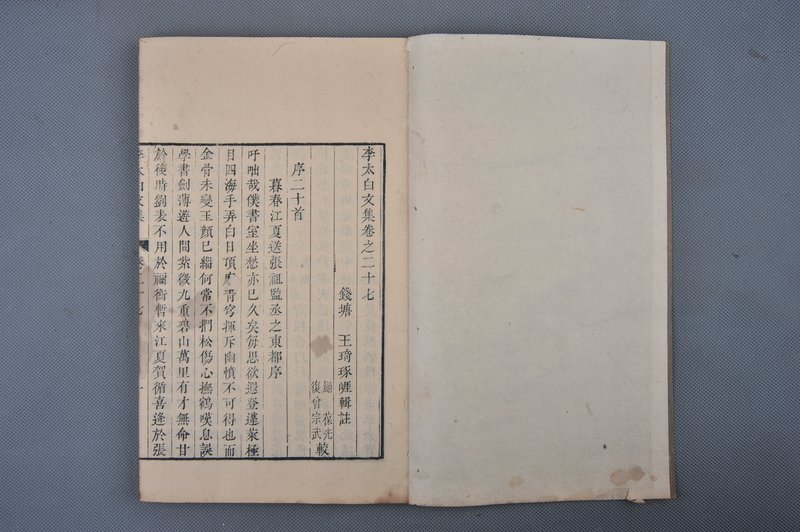 李太白文集卷之二十七
錢塘 王琦琢崖輯註
葆光
復曾宗武較
序二十首
暮春江夏送張祖監丞之東都序
吁咄哉僕書室坐愁亦已久矣每思欲遐登蓬萊極
目四海手弄白日頂摩青穹揮斥幽憤不可得也而
金骨未變玉顏已緇何常不捫松傷心撫鶴嘆息誤
學書劍薄遊人間紫微九重碧山萬里有才無命甘
於後時劉表不用於禰衡暫來江夏賀循喜逢於張
李太白文集 卷二十七 一